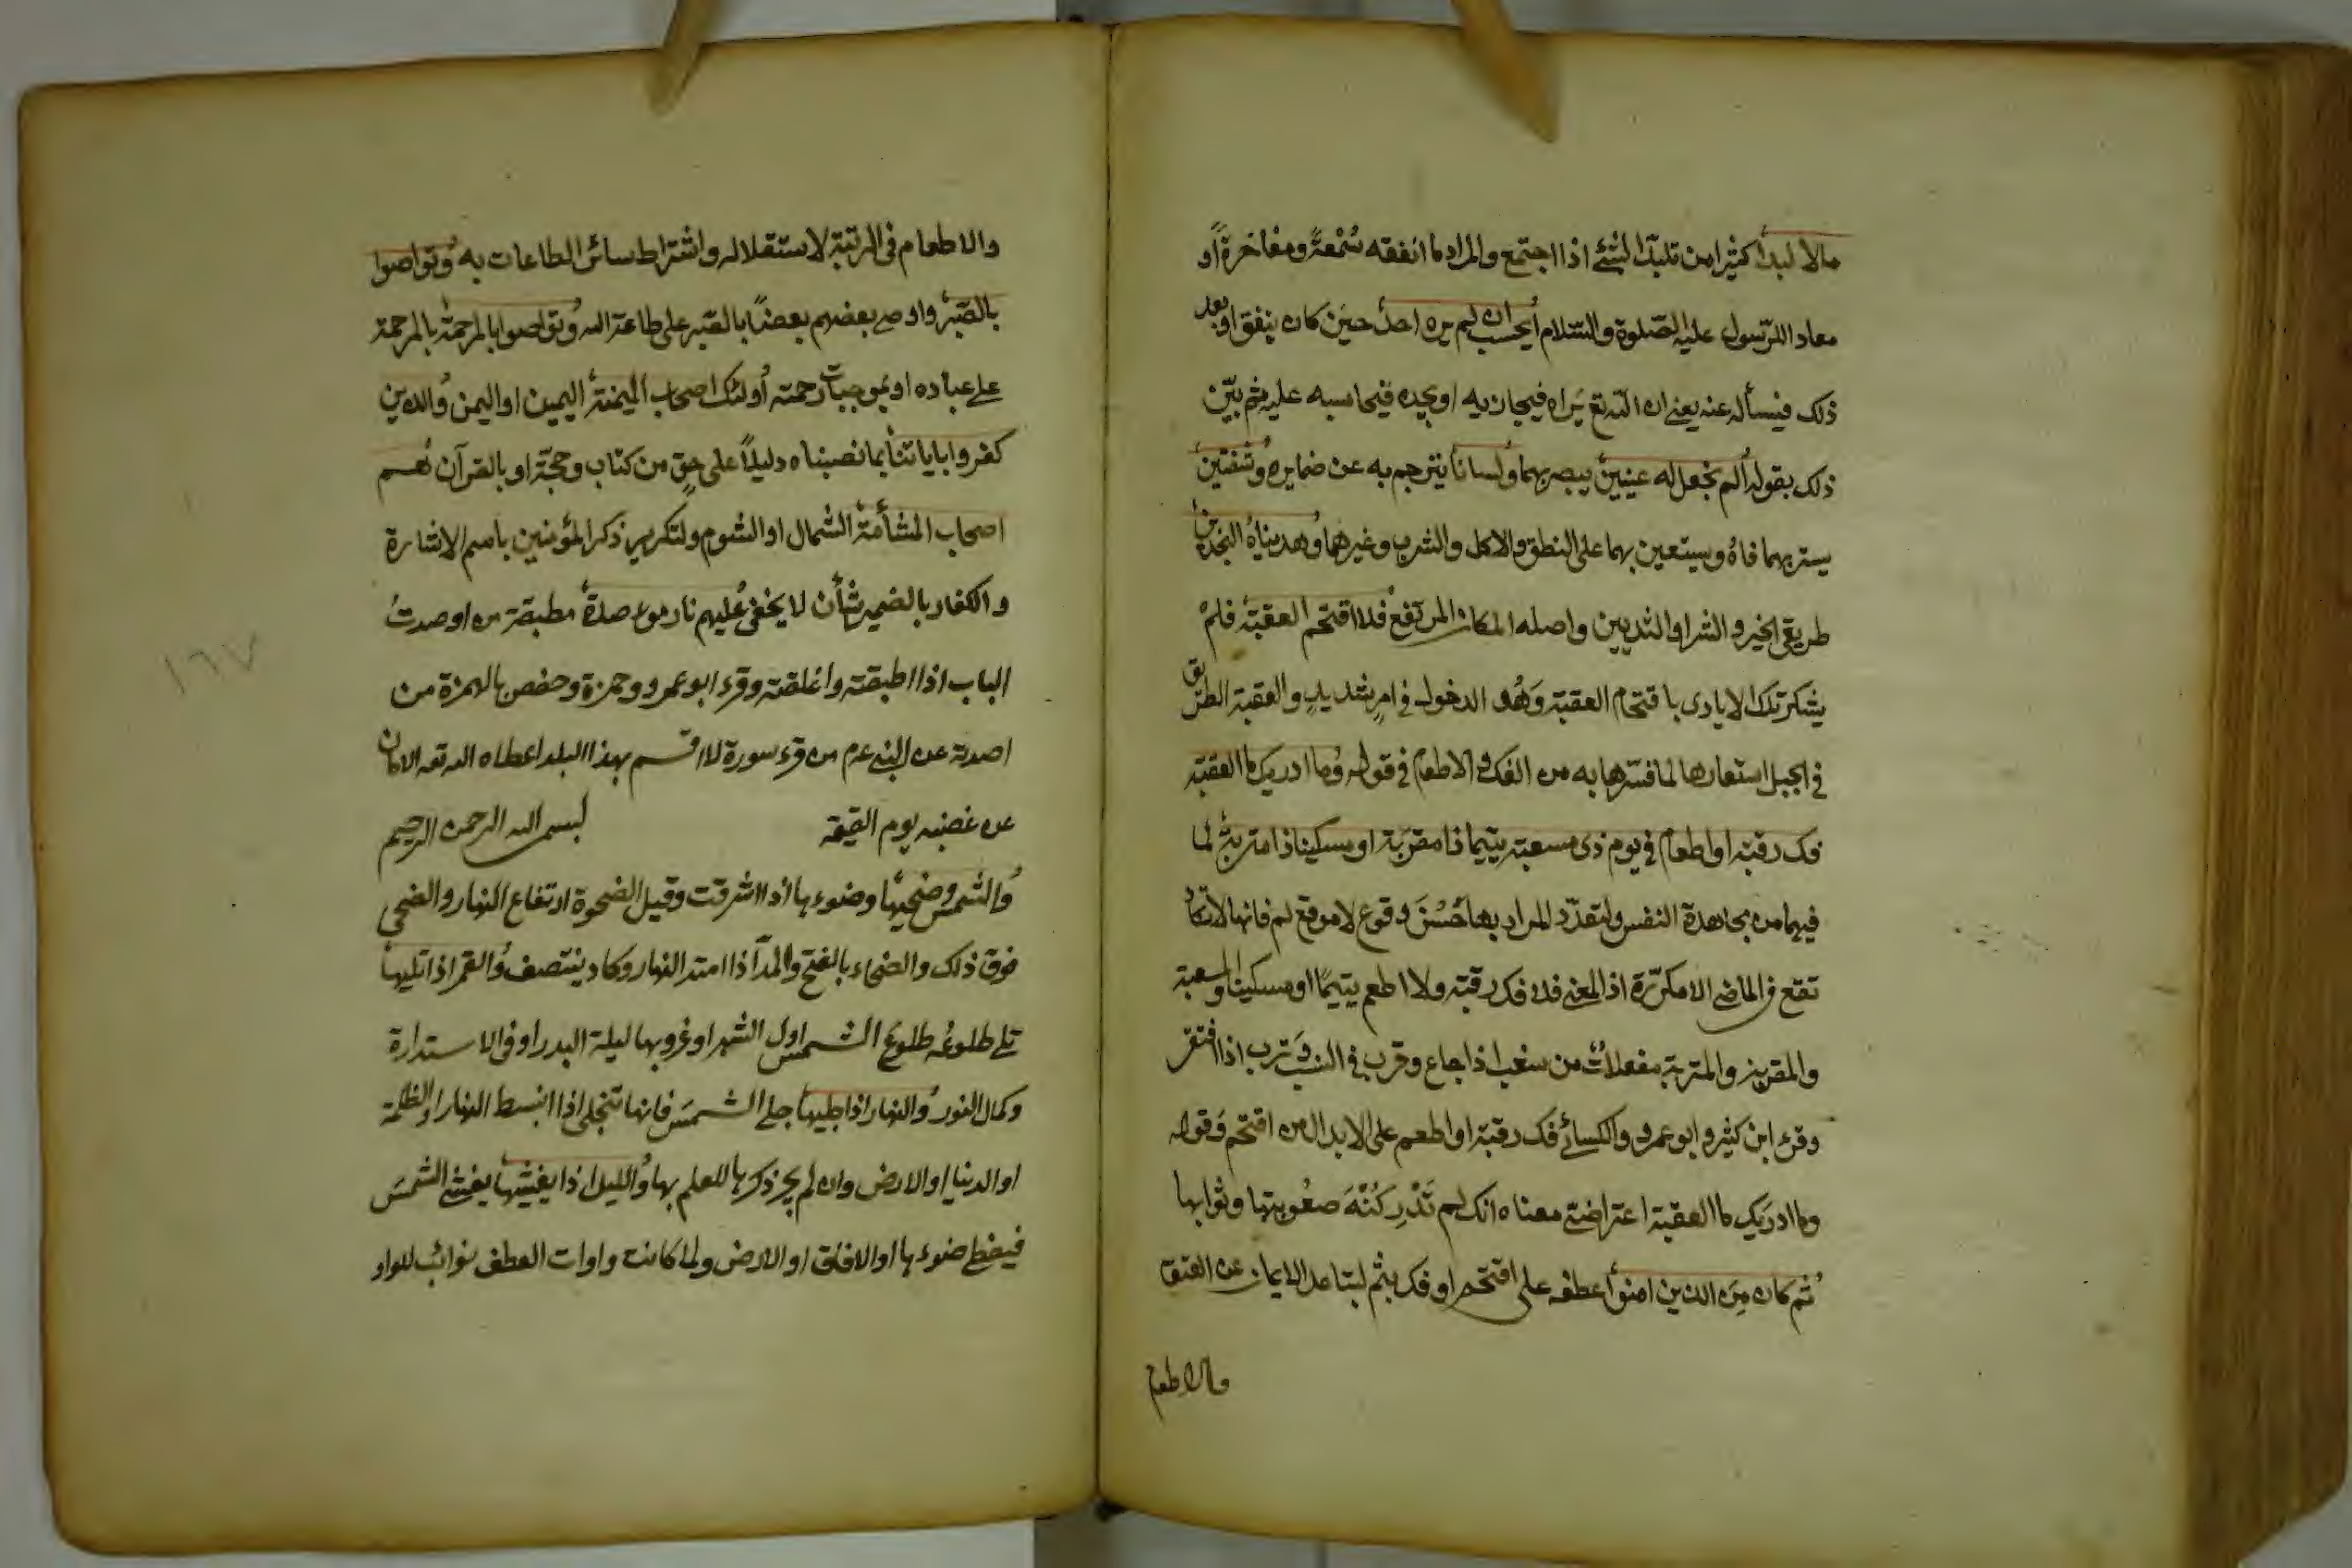 مالا لبدا كثيرا من تلبد الشئ اذا اجتمع والمراد ما انفقه سُمْعةً ومفاخرةً او
معاداة للرّسول عليه الصّلوة والسّلام أيحسب ان لم يره احدٌ حين كان ينفق او بعد
ذلك فيسأله عنه يعنى ان الله تع يَراه فيجازيه او يجده فيحاسبه عليه ثم بيّن
ذلك بقوله ألم نجعل له عينين يبصر بهما ولسانا يترجم به عن ضمايره وشفتين
يستر بهما فاهُ ويستعين بهما على النطق والاكل والشرب وغيرهما وهديناه النجدين
طريقى الخير والشر او الثديين واصله المكان المرتفع فلا اقتحم العقبة فلم
يشكر تلك الايادى باقتحام العقبة وَهُو الدخول فى امرٍ شديدٍ والعقبة الطريق
فى الجبل استعارها لما فسّرها به من الفك والاطعام فى قوله وما ادريك ما العقبة
فك رقبة او اطعام فى يوم ذى مسغبة يتيما ذا مقربة او مسكينا ذا متربة لما
فيهما من مجاهدة النفس ولتعدّد المراد بها حَسُنَ وقوع لا موقع لم فانها لا تكاد
تقع فى الماضى الا مكرّرة اذ المعنى فلا فك رقبة ولا اطعم يتيمًا او مسكينا والمسغبة
والمقربة والمتربة مفعلاتٌ من سغب اذا جاع وقرب فى النسب وترب اذا افتقر
وقرء ابن كثير وابو عمرو والكسائى فك رقبة او اطعم على الابدال من اقتحم وقوله
وما ادريك ما العقبة اعتراضٌ معناه انك لم تَدْرِ كُنْهَ صعُوبتها وثوابها
ثم كان مِنَ الذين امنوا عطفه على اقتحم او فك بثم لتباعد الايمان عن العتق
والاطعام
والاطعام فى الرتبة لاستقلاله واشتراط سائر الطاعات به وتواصوا
بالصّبر واوصى بعضهم بعضًا بالصّبر على طاعة الله وتواصوا بالمرحمة بالمرحمة
على عباده او بموجبات رحمته أولئك اصحاب الميمنة اليمين او اليمن والذين
كفروا باياتنا بما نصبناه دليلاً على حقٍ من كتاب وحجّة او بالقرآن هُم
اصحاب المشأمة الشمال او الشوم ولتكرير ذكر المؤمنين باسم الاشارة
والكفار بالضمير شأن لا يخفى عليهم نار موءصدة مطبقة من اوصدتُ
الباب اذا اطبقته واغلقته وقرء ابو عمرو وحمزة وحفص بالهمزة من
اصدته عن النبى عم من قرء سورة لا اقسم بهذا البلد اعطاه الله تعه الامان
عن غضبه يوم القيمة بسم الله الرحمن الرحيم
والشمس وضحيها وضوءها اذا اشرقت وقيل الضحوة ارتفاع النهار والضحى
فوق ذلك والضحاء بالفتح والمدّ اذا امتد النهار وكاد ينتصف والقمر اذا تليها
تلى طلوعُه طلوعَ الشمس اول الشهر او غروبها ليلة البدر او فى الاستدارة
وكمال النور والنهار اذا جليها جلى الشمسَ فانها تنجلى اذا انبسط النهار او الظلمة
او الدنيا او الارض وان لم يجر ذكرها للعلم بها والليل اذا يغشيها يغشى الشمسَ
فيغطى ضوءها او الافاق او الارض ولما كانت واوات العطف نوائب للواو
١٦٧